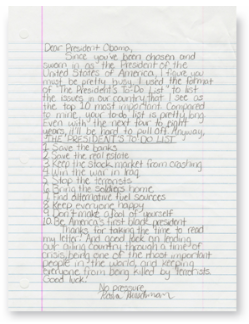 Dear President Obama,
Since you've been chosen and
sworn in as the President of the
United States of America, I figure you
must be pretty busy. I used the format
of "The President's To-Do List" to list
the issues in our country that I see as
the top 10 most important. Compared
to mine, your to-do list is pretty long.
Even with the next four to eight
years, it'll be hard to pull off. Anyway,
THE PRESIDENT'S TO-DO LIST
1. Save the banks
2. Save the real estate
3. Keep the stock market from crashing
4. Win the war in Iraq
5. Stop the terrorists
6. Bring the soldiers home
7. Find alternative fuel sources
8. Keep everyone happy
9. Don't make a fool of yourself
10. Be America's first black president
Thanks for taking the time to read
my letter. And good luck on leading
our ailing country through a time of
crisis, being one of the most important
people in the world, and keeping
everyone from being killed by terrorists.
Good luck!
No pressure,